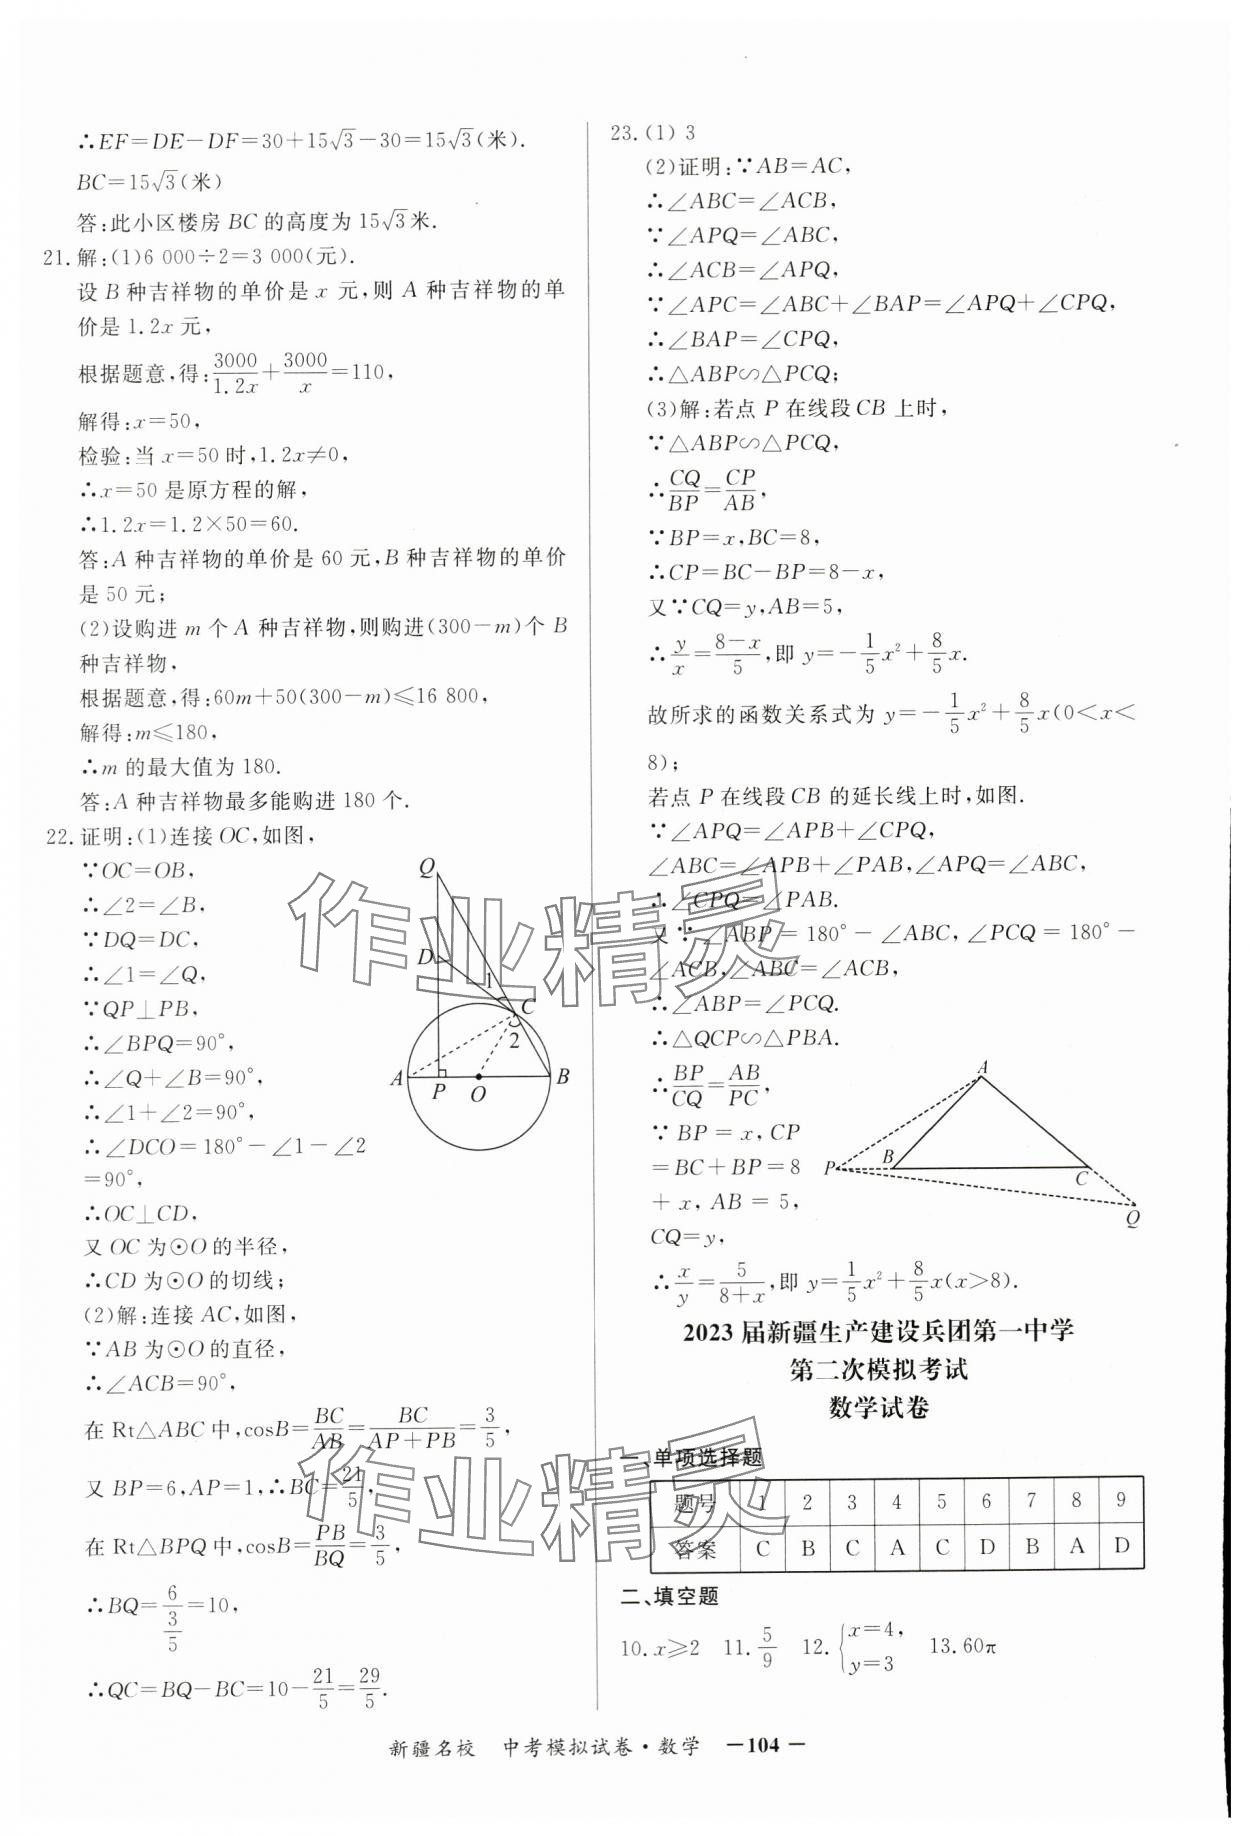 ∴EF=DE-DF=30+15√3-30=15√3(米).
BC=15√3(米)
答:此小区楼房 BC 的高度为 15√3米.
21. 解:(1)6 000÷2=3 000(元).
设 B 种吉祥物的单价是 x 元,则 A 种吉祥物的单
价是 1.2x 元,
根据题意,得:3000/1.2x+3000/x=110,
解得:x=50,
检验:当 x=50 时,1.2x≠0,
∴x=50 是原方程的解,
∴1.2x=1.2×50=60.
答:A 种吉祥物的单价是 60 元,B 种吉祥物的单价
是 50 元;
(2)设购进 m 个 A 种吉祥物,则购进(300-m)个 B
种吉祥物,
根据题意,得:60m+50(300-m)≤16 800,
解得:m≤180,
∴m 的最大值为 180.
答:A 种吉祥物最多能购进 180 个.
22. 证明:(1)连接 OC,如图,
∵OC=OB,
∴∠2=∠B,
∵DQ=DC,
∴∠1=∠Q,
∵QP⊥PB,
∴∠BPQ=90°,
∴∠Q+∠B=90°,
∴∠1+∠2=90°,
∴∠DCO=180°-∠1-∠2
=90°,
∴OC⊥CD,
又 OC 为⊙O 的半径,
∴CD 为⊙O 的切线;
Q
D
1
C
2
A
P
O
B
(2)解:连接 AC,如图,
∵AB 为⊙O 的直径,
∴∠ACB=90°,
在 Rt△ABC 中,cosB=BC/AB=BC/(AP+PB)=3/5,
又 BP=6,AP=1,∴BC=21/5,
在 Rt△BPQ 中,cosB=PB/BQ=3/5,
∴BQ=6/(3/5)=10,
∴QC=BQ-BC=10-21/5=29/5.
23. (1) 3
(2)证明:∵AB=AC,
∴∠ABC=∠ACB,
∵∠APQ=∠ABC,
∴∠ACB=∠APQ,
∵∠APC=∠ABC+∠BAP=∠APQ+∠CPQ,
∴∠BAP=∠CPQ,
∴△ABP∽△PCQ;
(3)解:若点 P 在线段 CB 上时,
∵△ABP∽△PCQ,
∴CQ/BP=CP/AB,
∵BP=x,BC=8,
∴CP=BC-BP=8-x,
又∵CQ=y,AB=5,
∴y/x=(8-x)/5,即 y=-1/5x²+8/5x.
故所求的函数关系式为 y=-1/5x²+8/5x(0<x<
8);
若点 P 在线段 CB 的延长线上时,如图.
∵∠APQ=∠APB+∠CPQ,
∠ABC=∠APB+∠PAB,∠APQ=∠ABC,
∴∠CPQ=∠PAB.
又∵∠ABP=180°-∠ABC,∠PCQ=180°-
∠ACB,∠ABC=∠ACB,
∴∠ABP=∠PCQ.
∴△QCP∽△PBA.
∴BP/CQ=AB/PC,
∵BP=x,CP
=BC+BP=8
+x,AB=5,
CQ=y,
A
P
B
C
Q
∴x/y=5/(8+x),即 y=1/5x²+8/5x(x>8).
2023 届新疆生产建设兵团第一中学
第二次模拟考试
数学试卷
一、单项选择题
题号 1 2 3 4 5 6 7 8 9
答案 C B C A C D B A D
二、填空题
10. x≥2 11. 5/9 12. {x=4, y=3 13. 60π
新疆名校 中考模拟试卷·数学 —104—
作业精灵
作业精灵